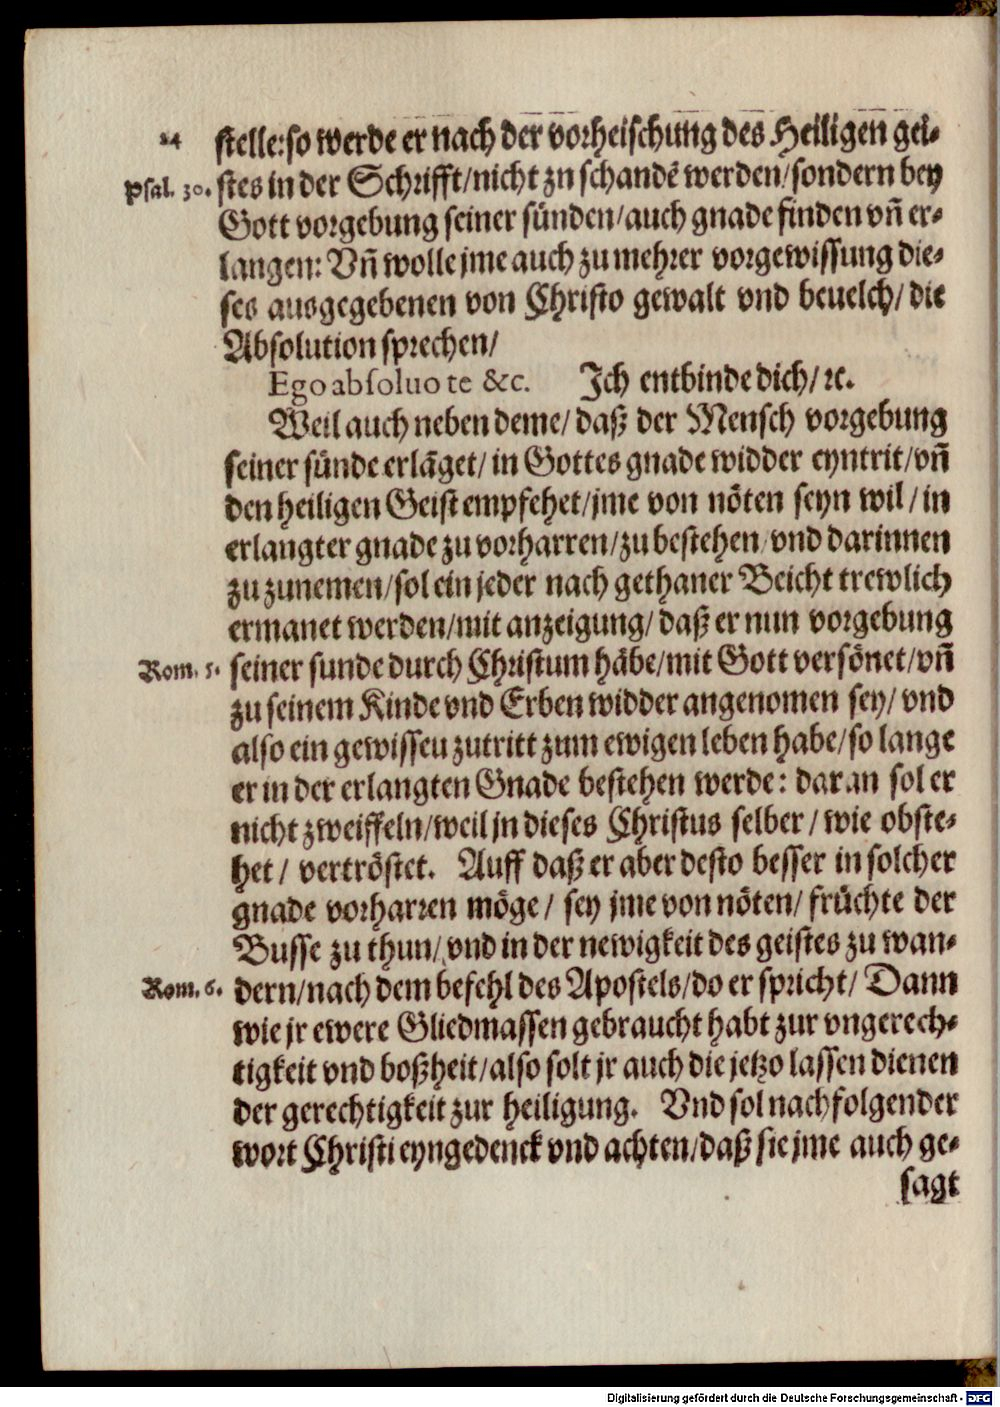 24 stelle: so werde er nach der vorheischung des Heiligen gei-
Psal. 30. stes in der Schrifft/ nicht zu schandē werden/ sondern bey
Gott vorgebung seiner sünden/ auch gnade finden vn̄ er-
langen: Vn̄ wolle jme auch zu mehrer vorgewissung die-
ses ausgegebenen von Christo gewalt vnd beuelch/ die
Absolution sprechen/
Ego absoluo te &c. Ich entbinde dich/ ꝛc.
Weil auch neben deme/ daß der Mensch vorgebung
seiner sünde erlāget/ in Gottes gnade widder eyntrit/ vn̄
den heiligen Geist empfehet/ jme von nöten seyn wil/ in
erlangter gnade zu vorharren/ zu bestehen/ vnd darinnen
zu zunemen/ sol ein jeder nach gethaner Beicht trewlich
ermanet werden/ mit anzeigung/ daß er nun vorgebung
Rom. 5. seiner sunde durch Christum häbe/ mit Gott versönet/ vn̄
zu seinem Kinde vnd Erben widder angenomen sey/ vnd
also ein gewissen zutritt zum ewigen leben habe/ so lange
er in der erlangten Gnade bestehen werde: daran sol er
nicht zweiffeln/ weil jn dieses Christus selber/ wie obste-
het/ vertröstet. Auff daß er aber desto besser in solcher
gnade vorharren möge/ sey jme von nöten/ früchte der
Busse zu thun/ vnd in der newigkeit des geistes zu wan-
Rom. 6. dern/ nach dem befehl des Apostels/ do er spricht/ Dann
wie jr ewere Gliedmassen gebraucht habt zur vngerech-
tigkeit vnd boßheit/ also solt jr auch die jetzo lassen dienen
der gerechtigkeit zur heiligung. Vnd sol nachfolgender
wort Christi eyngedenck vnd achten/ daß sie jme auch ge-
sagt
Digitalisierung gefördert durch die Deutsche Forschungsgemeinschaft - DFG